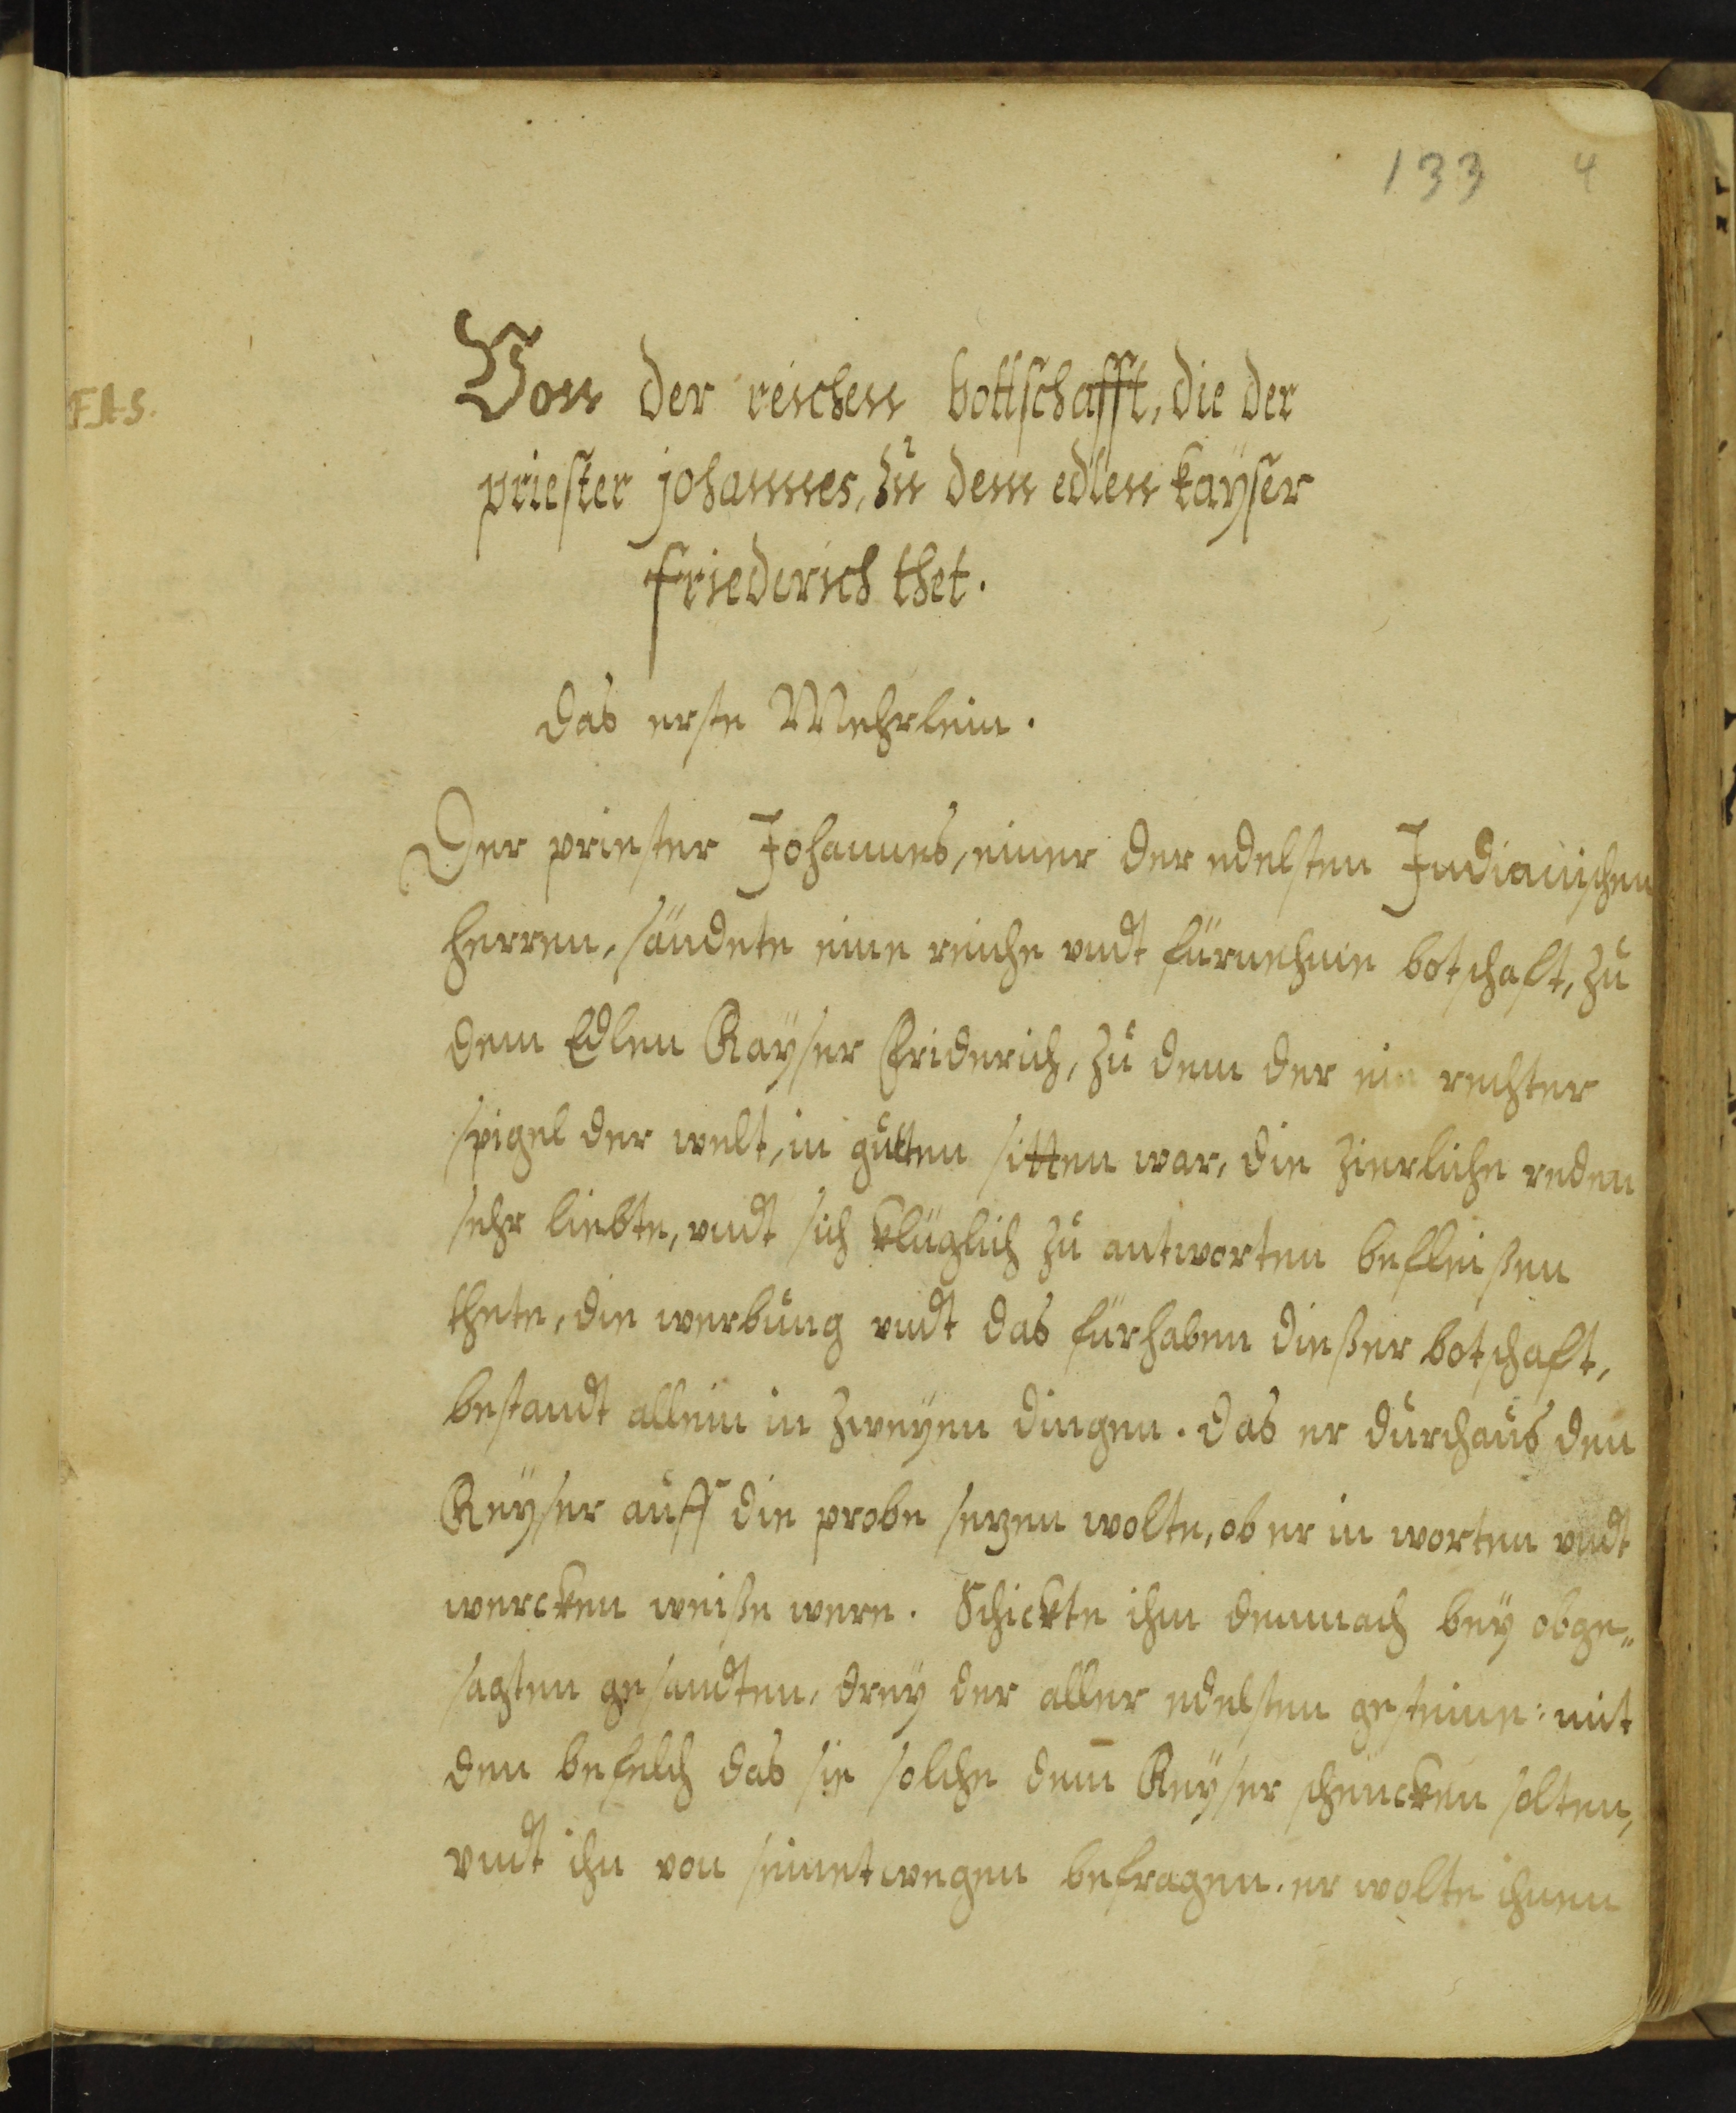 133 4
F.A.S.
Von der reichen bottschafft, die der
priester johannes, zu dem edlen kayser
friederich thet.
Das erste Mehrlein.
Der priester Johannes, einer der edelsten Indianischen
herren, sändete eine reiche vndt fürnehme botschaft, zu
dem Edlen Kayser Friderich, zu dem der ein rechter
spigel der welt, in gutten sitten war, die zierliche reden
sehr liebte, vndt sich klüglich zu antworten befleißen
thete, die werbung vndt das fürhaben dießer botschaft,
bestandt allein in zweyen dingen. das er durchaus den
Keyser auff die probe sezen wolte, ob er in worten vndt
wercken weiße were. Schickte ihm demnach bey obge„
sagten gesandten, drey der aller edelsten gesteine: mit
den befelch das sie solche dem̄ Keyser schencken solten,
vndt ihn von seinetwegen befragen. er wolte ihnen